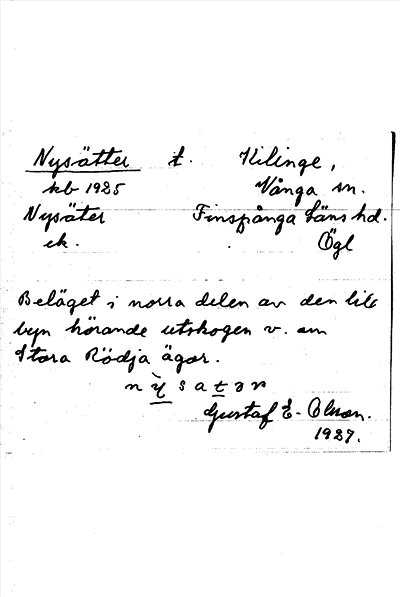 Nysätter t. Kilinge,
kb 1925 Vånga sn.
Nysäter Finspånga Läns hd.
ek. Ögl
Beläget i norra delen av den till
byn hörande utskogen v. om
Stora Rödja ägor.
n ỳ s a t ə r
Gustaf E. Olsson.
1927.